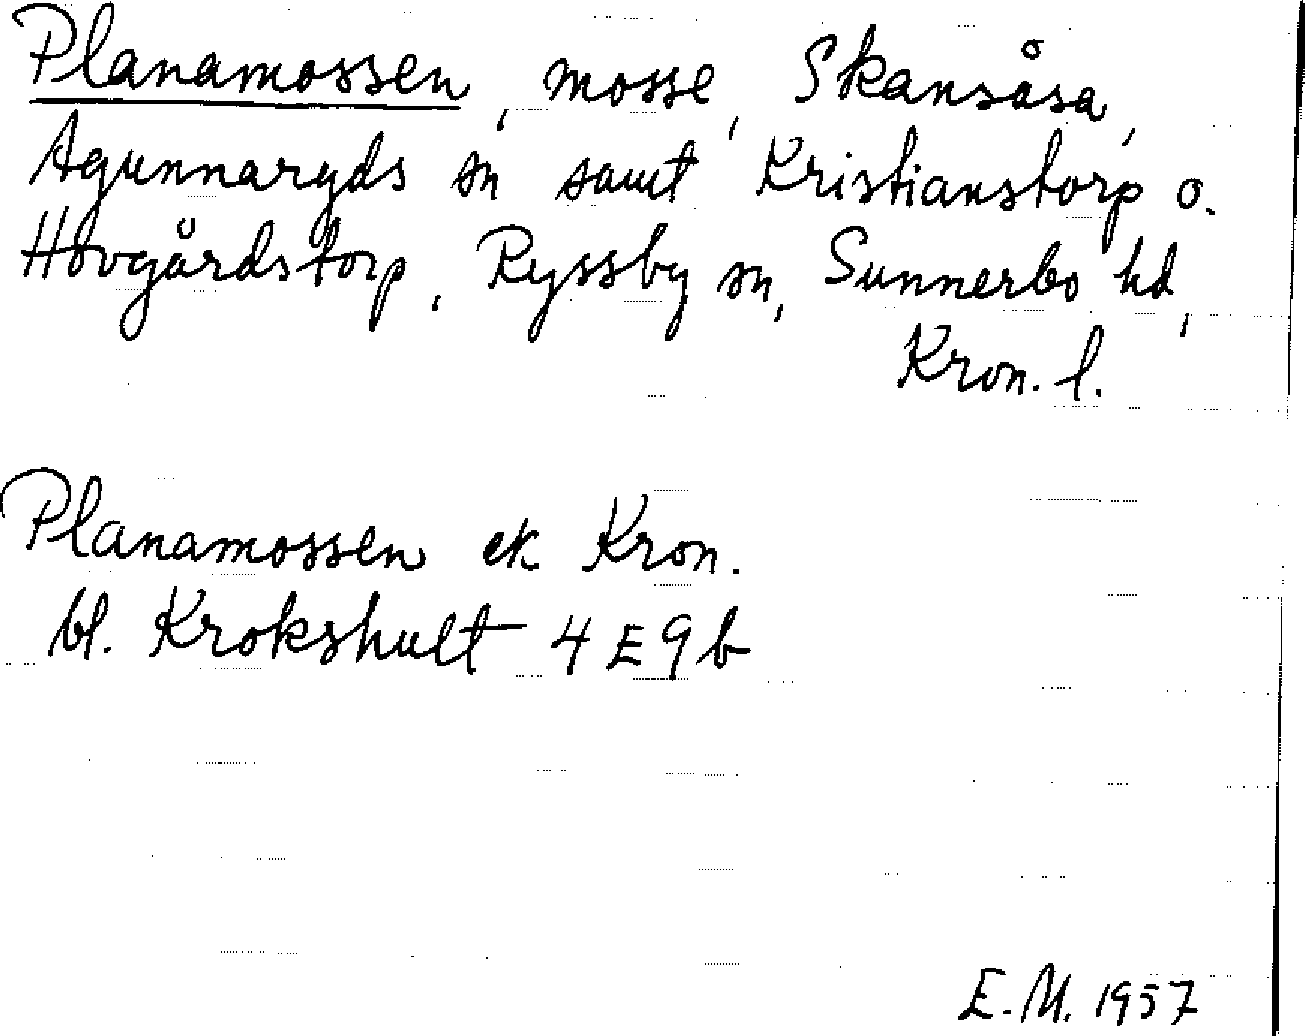 Planamossen, mosse, Skansåsa,
Agunnaryds sn samt Kristianstorp o.
Hovgårdstorp, Ryssby sn, Sunnerbo hd,
Kron. l.
Planamossen ek Kron.
bl. Krokshult 4 E 9 b
E. M. 1957